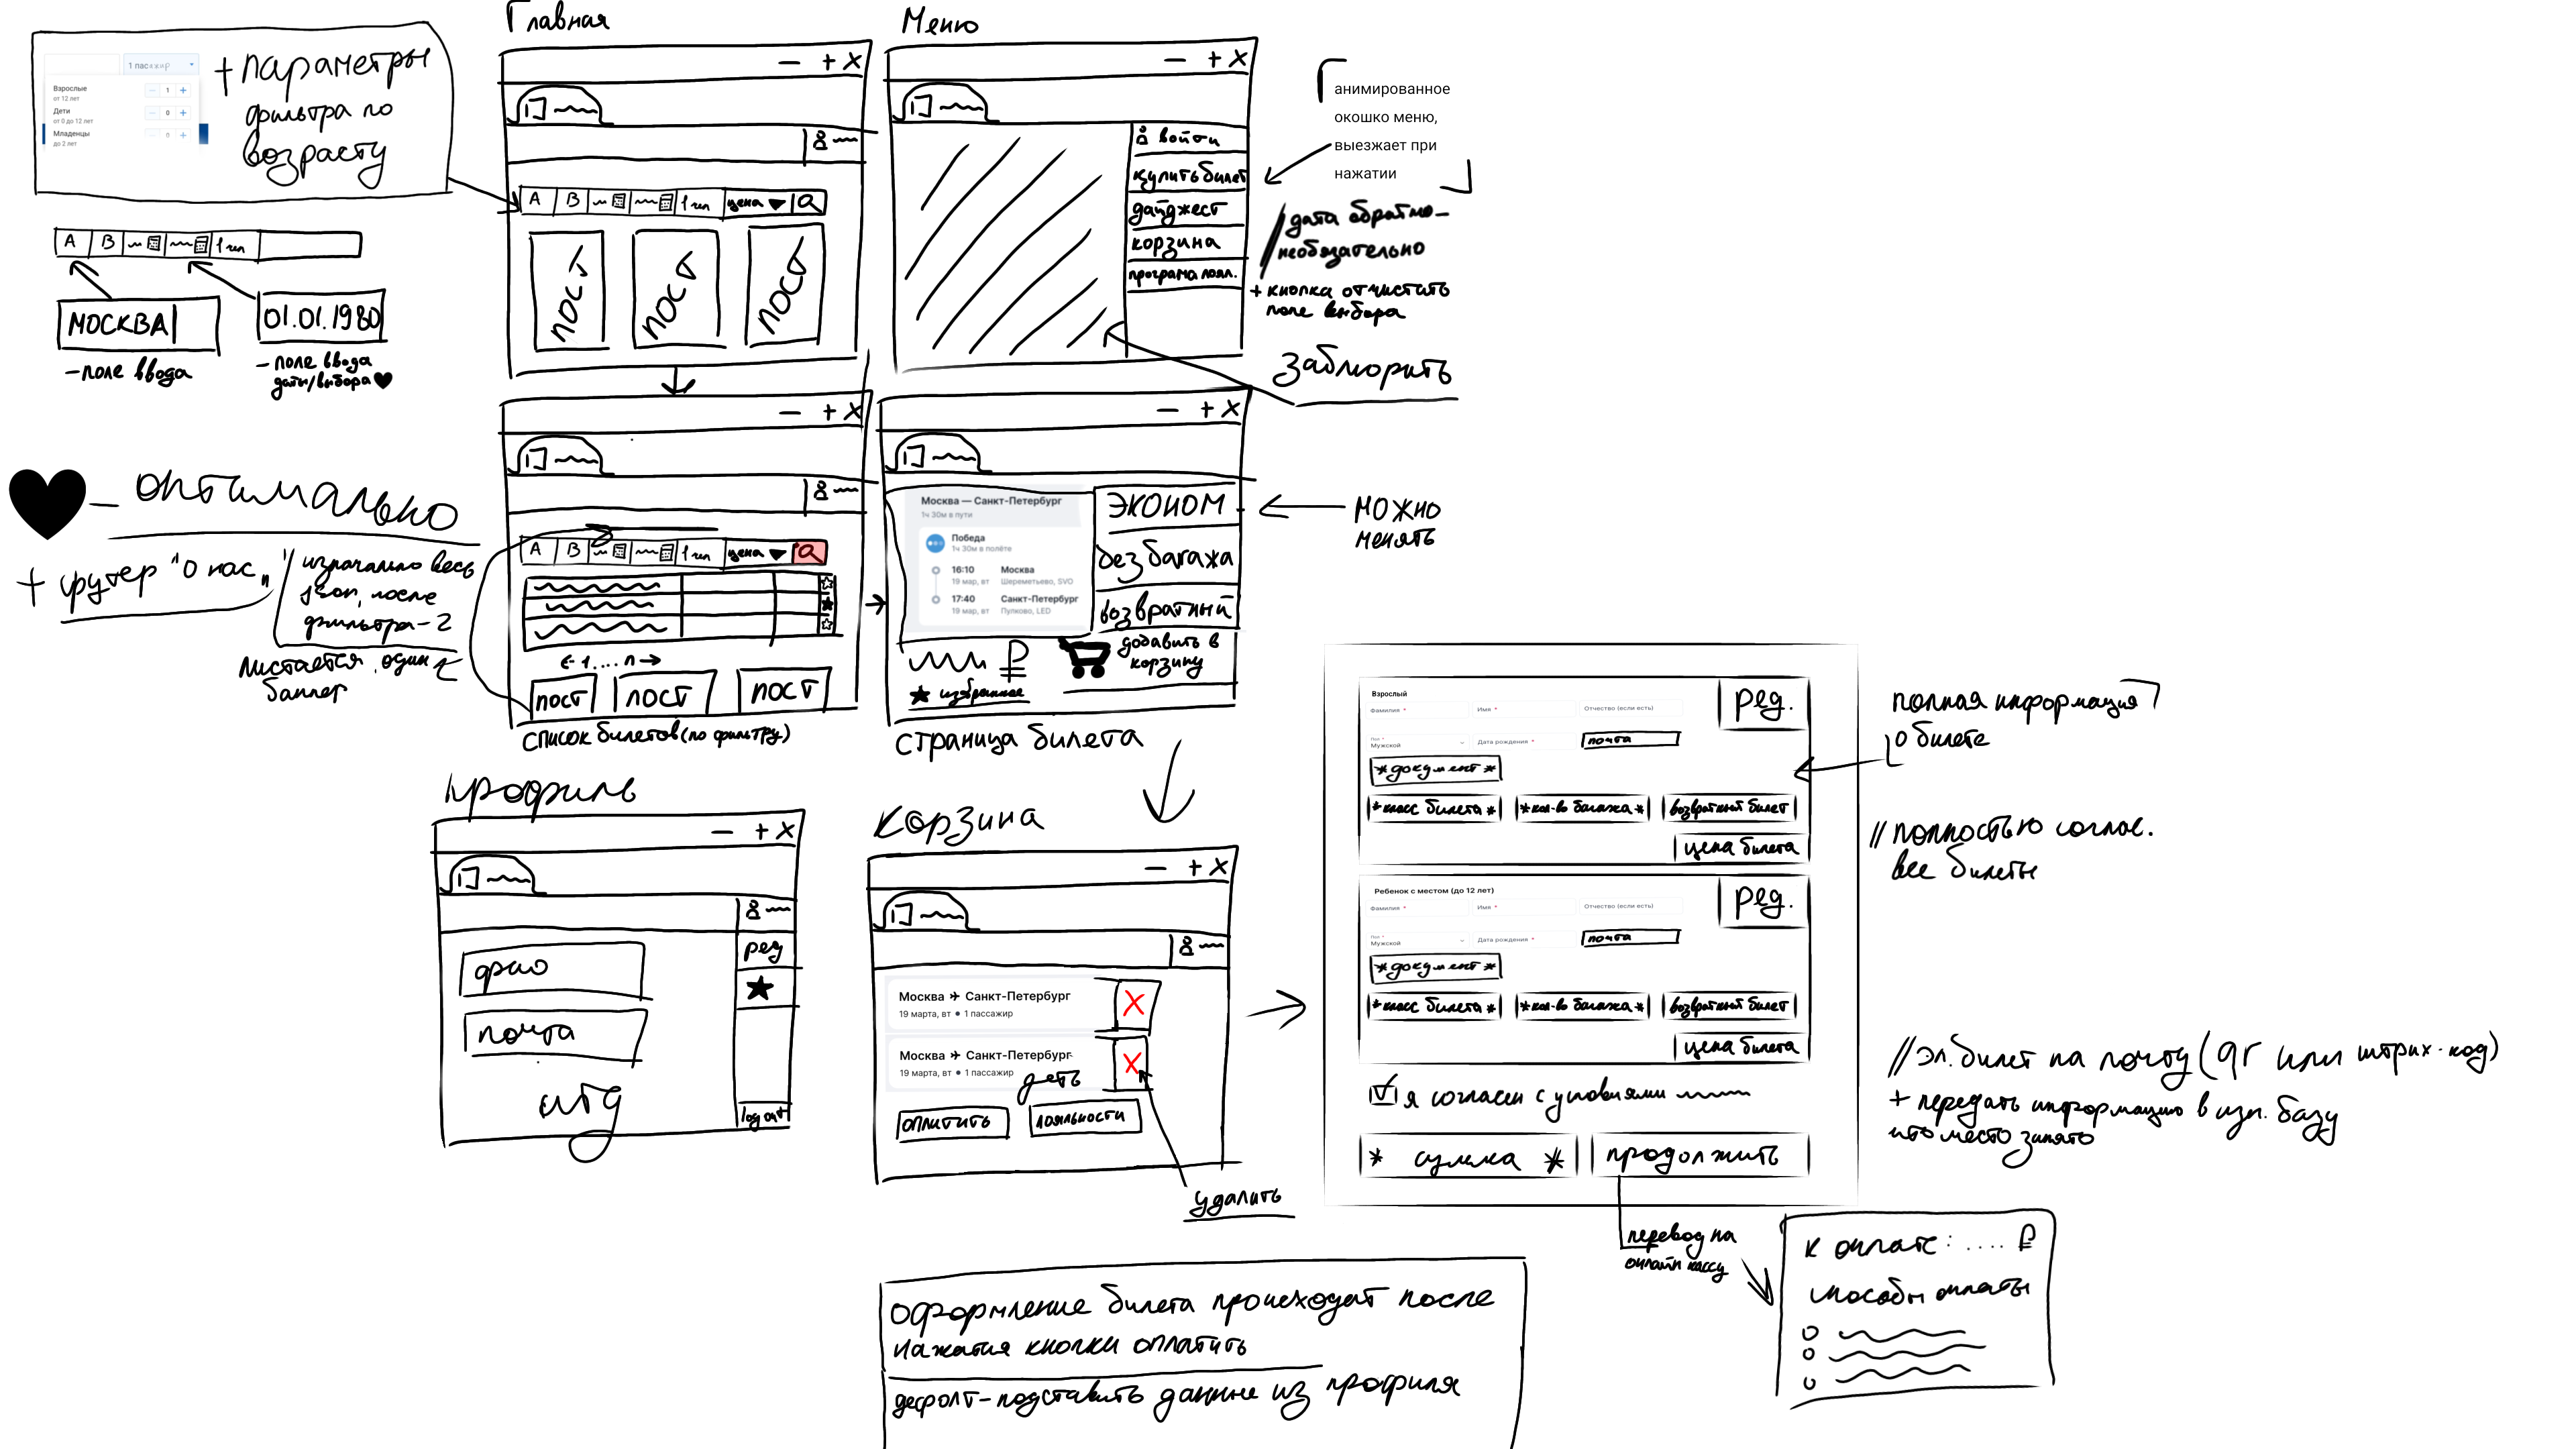 1 пассажир
Взрослые
от 12 лет
1
Дети
от 0 до 12 лет
0
Младенцы
до 2 лет
0
+ параметры
фильтра по
возрасту
A B 1 чел
МОСКВА
- поле ввода
01.01.1980
- поле ввода
даты/выбора ♥
♥ - оптимально
+ футер "о нас"
// изначально весь
json, после
фильтра - 2
листается один
баннер
Главная
- + X
A B 1 чел цена
пост
пост
пост
Меню
- + X
войти
купить билет
дайджест
корзина
програма лоял.
анимированное
окошко меню,
выезжает при
нажатии
// дата обратно -
необязательно
+ кнопка отчистить
поле выбора
заблюрить
- + X
A B 1 чел цена
← 1 .... n →
пост
пост
пост
список билетов (по фильтру)
- + X
Москва — Санкт-Петербург
1ч 30м в пути
Победа
1ч 30м в полёте
16:10 Москва
19 мар, вт Шереметьево, SVO
17:40 Санкт-Петербург
19 мар, вт Пулково, LED
₽
★ избранное
ЭКОНОМ
без багажа
возвратный
добавить в
корзину
страница билета
можно
менять
Профиль
- + X
фио
почта
итд
ред
★
log out
Корзина
- + X
Москва ✈ Санкт-Петербург
19 марта, вт • 1 пассажир
X
Москва ✈ Санкт-Петербург
19 марта, вт • 1 пассажир
X
оплатить
лояльности
удалить
Взрослый
Фамилия *
Имя *
Отчество (если есть)
ред.
Пол *
Мужской
Дата рождения *
почта
* документ *
* класс билета *
* кол-во багажа *
возвратный билет
цена билета
Ребенок с местом (до 12 лет)
Фамилия *
Имя *
Отчество (если есть)
ред.
Пол *
Мужской
Дата рождения *
почта
* документ *
* класс билета *
* кол-во багажа *
возвратный билет
цена билета
я согласен с условиями
* сумма *
продолжить
полная информация
о билете
// полностью соглас.
все билеты
// эл. билет на почту (qr или штрих-код)
+ передать информацию в изн. базу
что место занято
перевод на
онлайн кассу
к оплате: .... ₽
способы оплаты
оформление билета происходит после
нажатия кнопки оплатить
дефолт - подставить данные из профиля